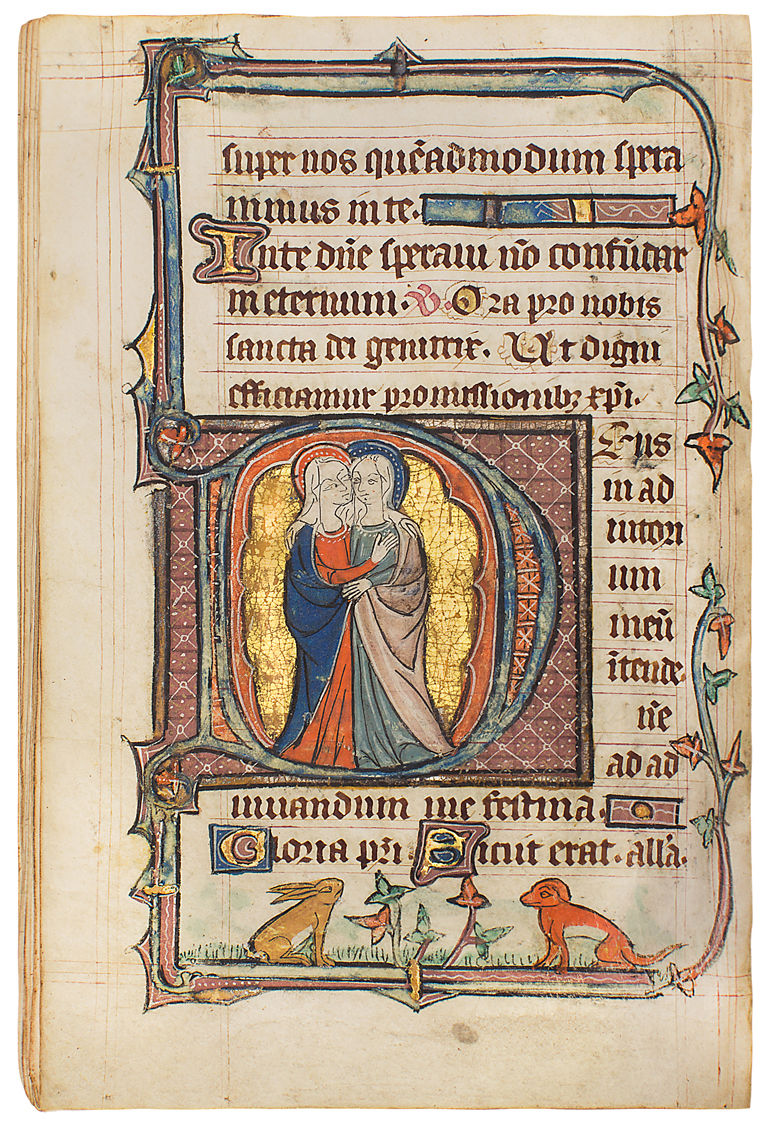 super nos quēadmodum spera
uimus in te.
In te dn̄e speraui nō confūdar
in eternum. V. Ora pro nobis
sancta dei genitrix. Ut digni
efficiamur promissionibꝫ xp̄i.
Deus
in ad
iutori
um
meū
ītende.
n̄e
ad ad
iuuandum me festina.
Gloria pr̄i. Sicut erat. all'a.